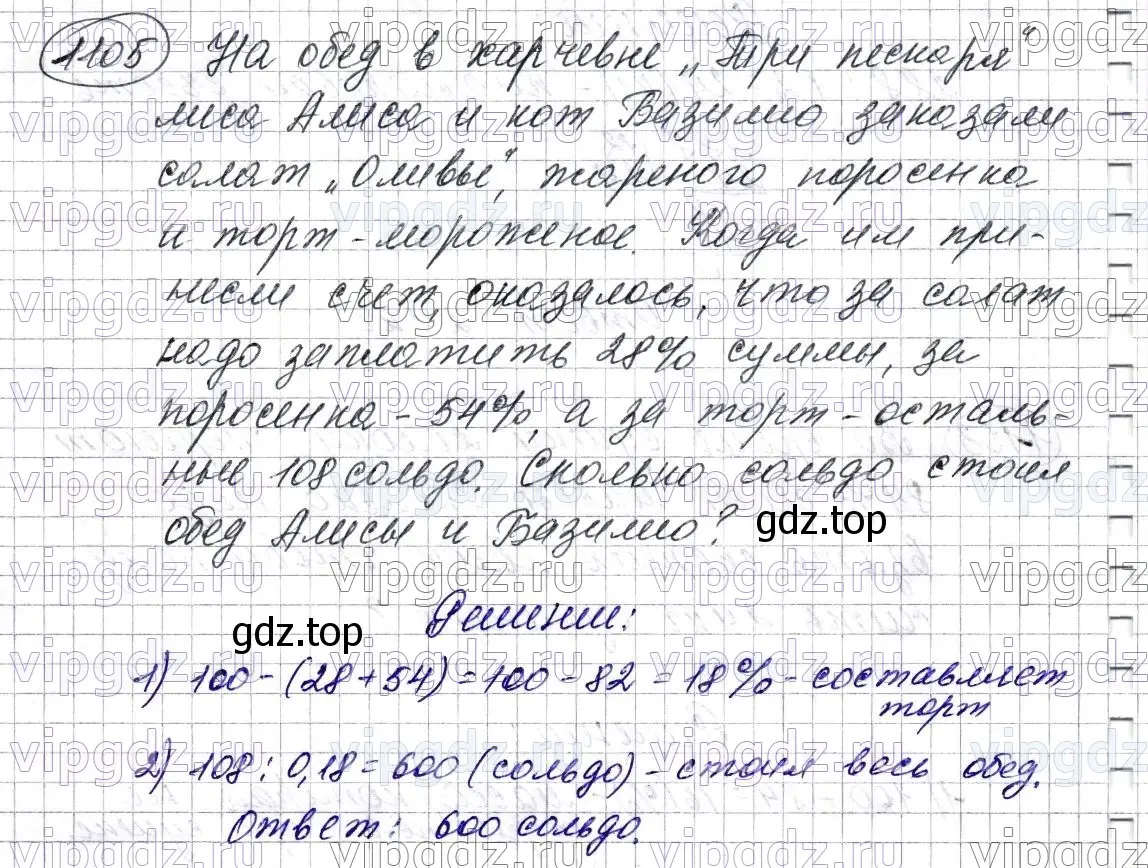 1105 На обед в харчевне „Три пескаря"
лиса Алиса и кот Базилио заказали
салат „Оливье", жареного поросенка
и торт-мороженое. Когда им при-
несли счет, оказалось, что за салат
надо заплатить 28% суммы, за
поросенка - 54%, а за торт - осталь-
ные 108 сольдо. Сколько сольдо стоил
обед Алисы и Базилио?
gdz.top
Решение:
gdz.top
1) 100 - (28 + 54) = 100 - 82 = 18% - составляет
торт
2) 108 : 0,18 = 600 (сольдо) - стоил весь обед.
Ответ: 600 сольдо.
vipgdz.ru